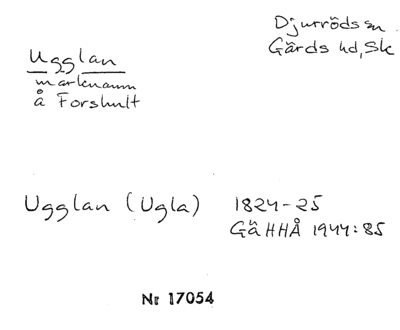 Djurröds sn
Gärds hd, Sk
Ugglan
marknamn
å Forshult
Ugglan (Ugla) 1824-25
GäHHÅ 1944:85
Nr 17054